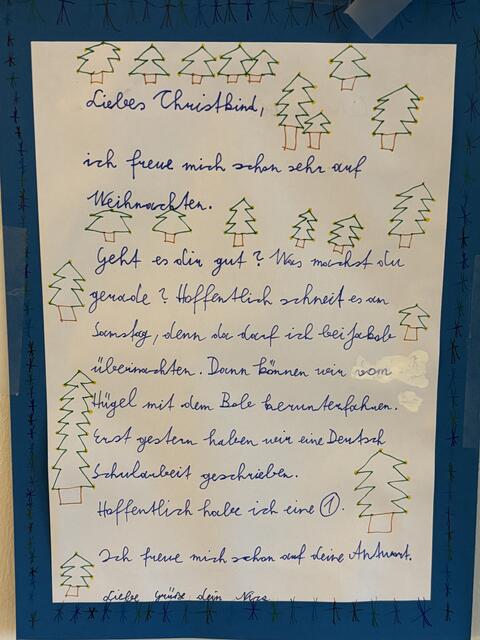 Liebes Christkind,
ich freue mich schon sehr auf
Weihnachten.
Geht es dir gut? Was machst du
gerade? Hoffentlich schneit es am
Samstag, denn da darf ich bei Jakob
übernachten. Dann können wir vom
Hügel mit dem Bob herunterfahren.
Erst gestern haben wir eine Deutsch
Schularbeit geschrieben.
Hoffentlich habe ich eine 1.
Ich freue mich schon auf deine Antwort.
Liebe Grüße dein